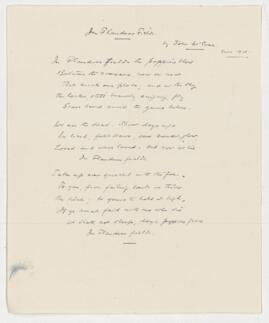 In Flanders Fields
by John McCrae
In Flanders fields the poppies blow
Between the crosses, row on row
That mark our place, and in the sky
The larks, still bravely singing, fly
Scarce heard amid the guns below.
We are the dead. Short days ago
We lived, felt dawn, saw sunset glow,
Loved and were loved, and now we lie
In Flanders fields.
Take up our quarrel with the foe.
To you, from failing hands we throw
The torch; be yours to hold it high,
If ye break faith with us who die
We shall not sleep, though poppies grow
In Flanders fields.